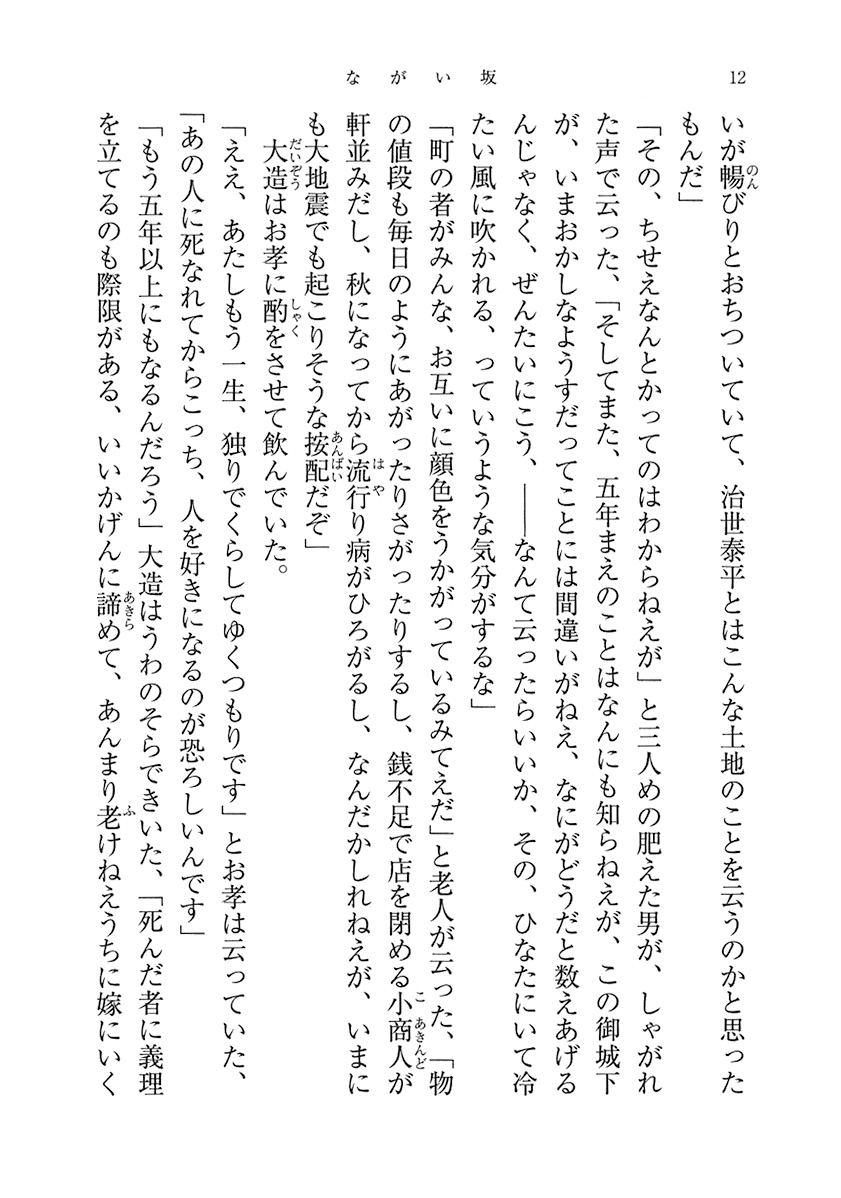 ながい坂
12
いが暢びりとおちついていて、治世泰平とはこんな土地のことを云うのかと思った
もんだ」
「その、ちせえなんとかってのはわからねえが」と三人めの肥えた男が、しゃがれ
た声で云った、「そしてまた、五年まえのことはなんにも知らねえが、この御城下
が、いまおかしなようすだってことには間違いがねえ、なにがどうだと数えあげる
んじゃなく、ぜんたいにこう、――なんて云ったらいいか、その、ひなたにいて冷
たい風に吹かれる、っていうような気分がするな」
「町の者がみんな、お互いに顔色をうかがっているみてえだ」と老人が云った、「物
の値段も毎日のようにあがったりさがったりするし、銭不足で店を閉める小商人が
軒並みだし、秋になってから流行り病がひろがるし、なんだかしれねえが、いまに
も大地震でも起こりそうな按配だぞ」
大造はお孝に酌をさせて飲んでいた。
「ええ、あたしもう一生、独りでくらしてゆくつもりです」とお孝は云っていた、
「あの人に死なれてからこっち、人を好きになるのが恐ろしいんです」
「もう五年以上にもなるんだろう」大造はうわのそらできいた、「死んだ者に義理
を立てるのも際限がある、いいかげんに諦めて、あんまり老けねえうちに嫁にいく